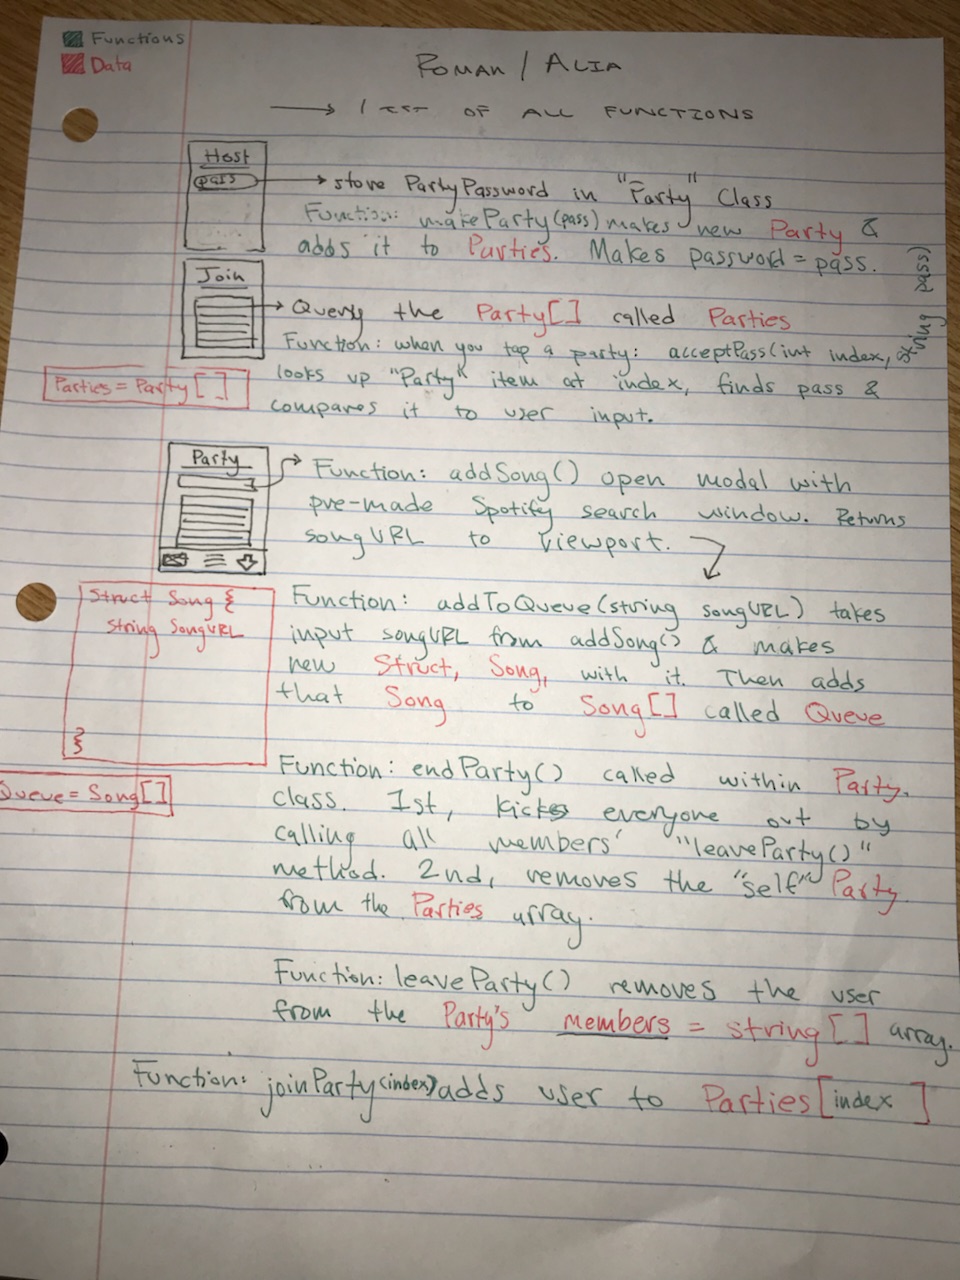 Functions
Data
ROMAN / ALIA
→ LIST OF ALL FUNCTIONS
Host
pass
→ store PartyPassword in "Party" Class
Function: makeParty(pass) makes new Party &
adds it to Parties. Makes password = pass.
Join
→ Query the Party[] called Parties
Function: when you tap a party: acceptPass(int index, string pass)
looks up "Party" item at index, finds pass &
compares it to user input.
Parties = Party[]
Party
Function: addSong() open modal with
pre-made Spotify search window. Returns
songURL to Viewport.
Struct Song {
string SongURL
}
Function: addToQueue(string songURL) takes
input songURL from addSong() & makes
new Struct, Song, with it. Then adds
that Song to Song[] called Queue
Queue = Song[]
Function: endParty() called within Party.
class. 1st, kicks everyone out by
calling all members' "leaveParty()"
method. 2nd, removes the "self" Party
from the Parties array.
Function: leaveParty() removes the user
from the Party's members = string[] array.
Function: joinParty(index) adds user to Parties[index]